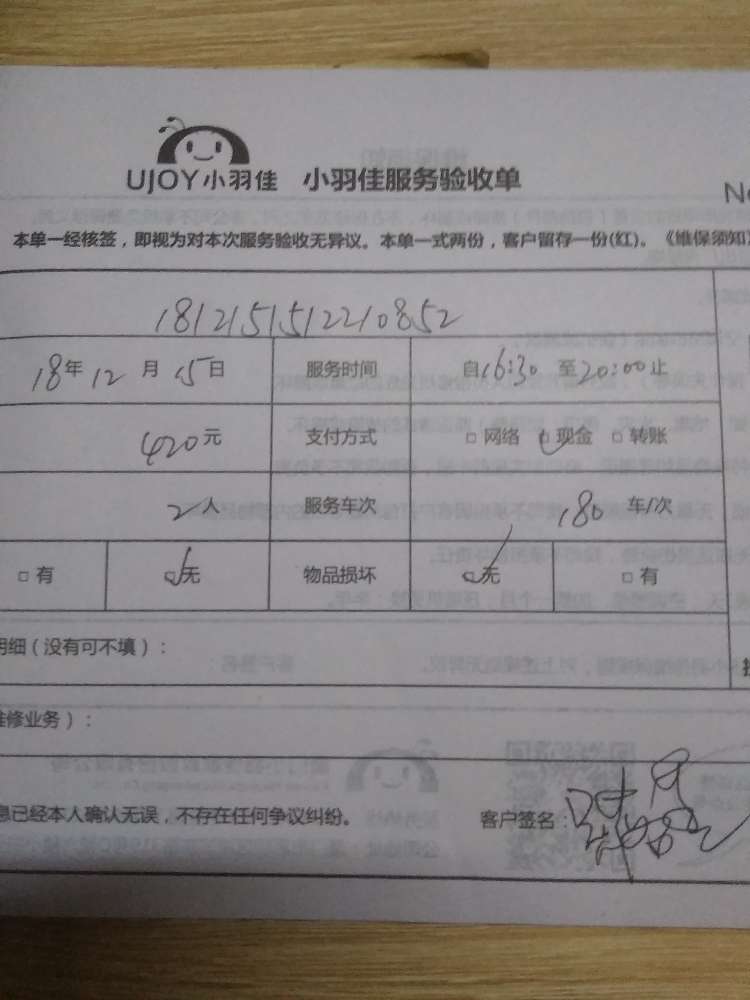 UJOY小羽佳 小羽佳服务验收单
No
本单一经核签，即视为对本次服务验收无异议。本单一式两份，客户留存一份(红)。《维保须知》
1812151512210852
18年12月15日 服务时间 自16:30至20:00止
420元 支付方式 □网络 □现金 □转账
2人 服务车次 180车/次
□有 □无 物品损坏 □无 □有
明细(没有可不填)：
维修业务)：
息已经本人确认无误，不存在任何争议纠纷。 客户签名：